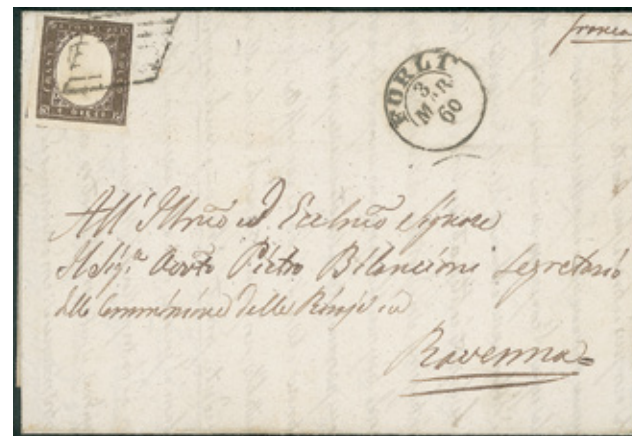 franca
FORLI
3
MAR
60
All' Illmo ed Eccelmo Signore
Il Sigr Avvto Pietro Bilancioni Segretario
della Commissione delle
Ravenna